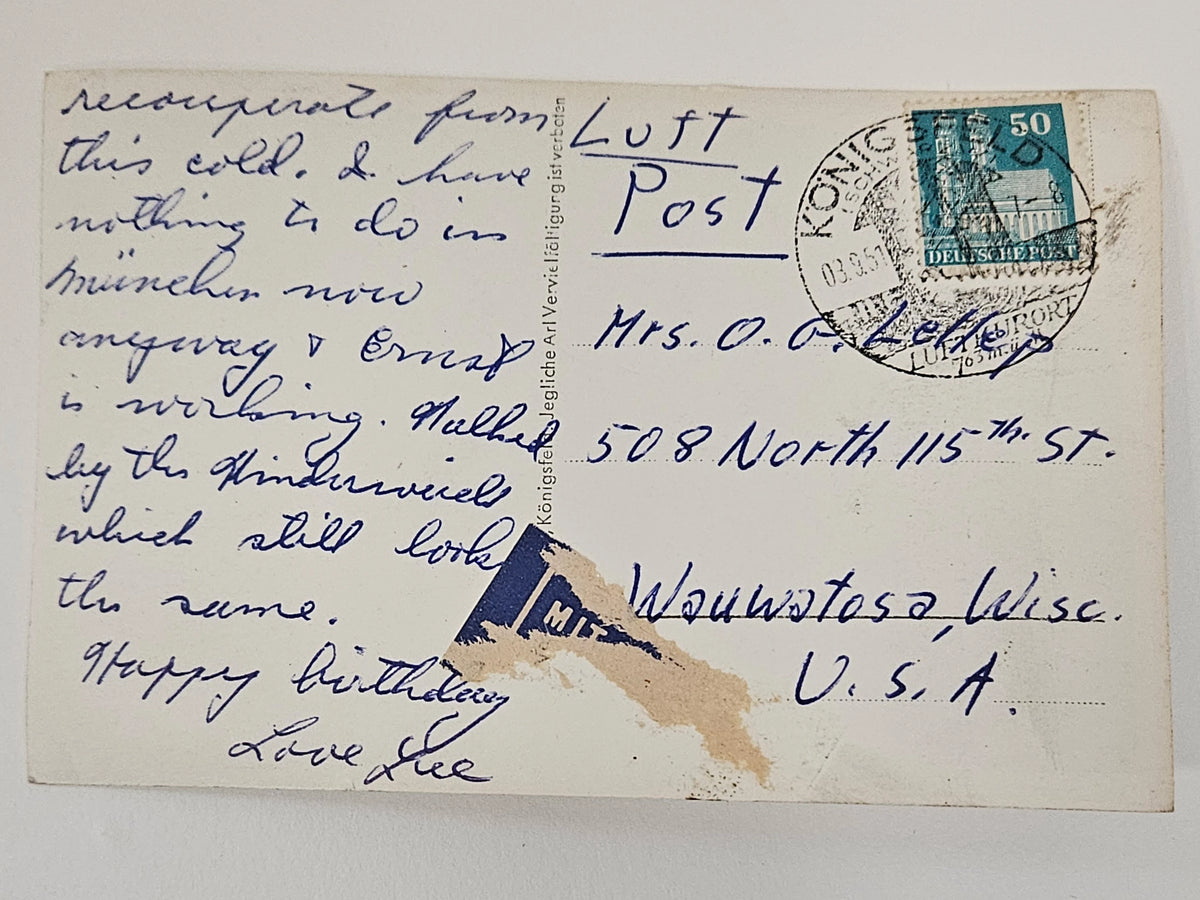 recouperate from
this cold. I have
nothing to do in
München now
anyway & Ernst
is working. Walked
by the
which still look
the same.
Happy birthday
Love Lee
Königsfeld Jegliche Art Vervielfältigung ist verboten
Luft
Post
KÖNIGSFELD
(SCHWARZW
03.9.51
7-8
LUFTKURORT
763 m.ü.M
50
DEUTSCHE POST
Mrs. O. G.
508 North 115th. St.
Wauwatosa, Wisc.
U. S. A.
MIT